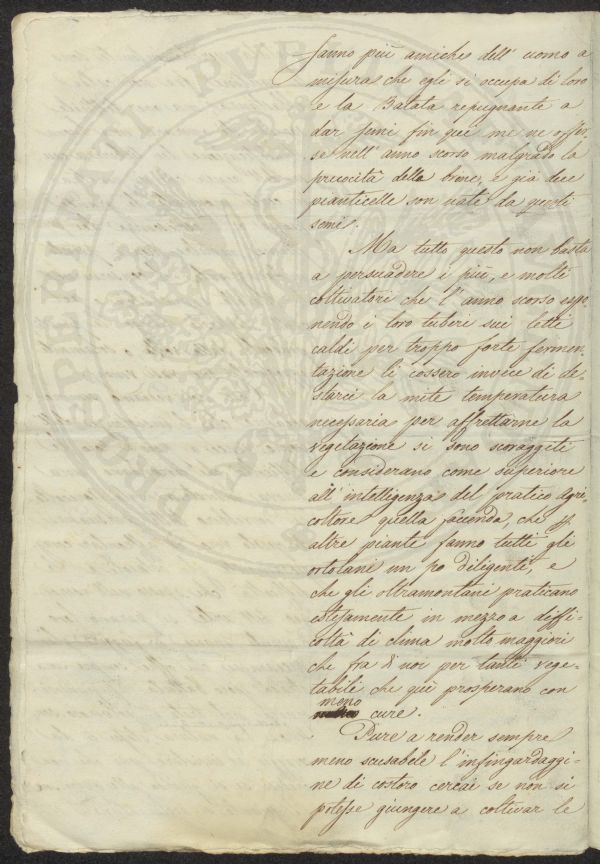 fanno più amiche dell' uomo a
misura che egli si occupa di loro
e la Batata repugnante a
dar semi fin qui me ne offer-
se nell' anno scorso malgrado la
precocità delle brine, e già dieci
pianticelle son nate da questi
semi.
Ma tutto questo non basta
a persuadere i più, e molti
coltivatori che l' anno scorso espo-
nendo i loro tuberi sui letti
caldi per troppo forte fermen-
tazione li cossero invece di de-
starci la mite temperatura
necessaria per affrettarne la
vegetazione si sono scoraggiti
e considerano come superiore
all' intelligenza del pratico agri-
coltore quella faccenda, che p.
altre piante fanno tutti gli
ortolani un po diligenti, e
che gli oltramontani praticano
estesamente in mezzo a diffi-
coltà di clima molto maggiori
che fra di noi per tanti vege-
tabili che quì prosperano con
meno
cure.
Pure a render sempre
meno scusabile l' infingardaggi-
ne di costoro cercai se non si
potesse giungere a coltivar le
PROSPERITATI